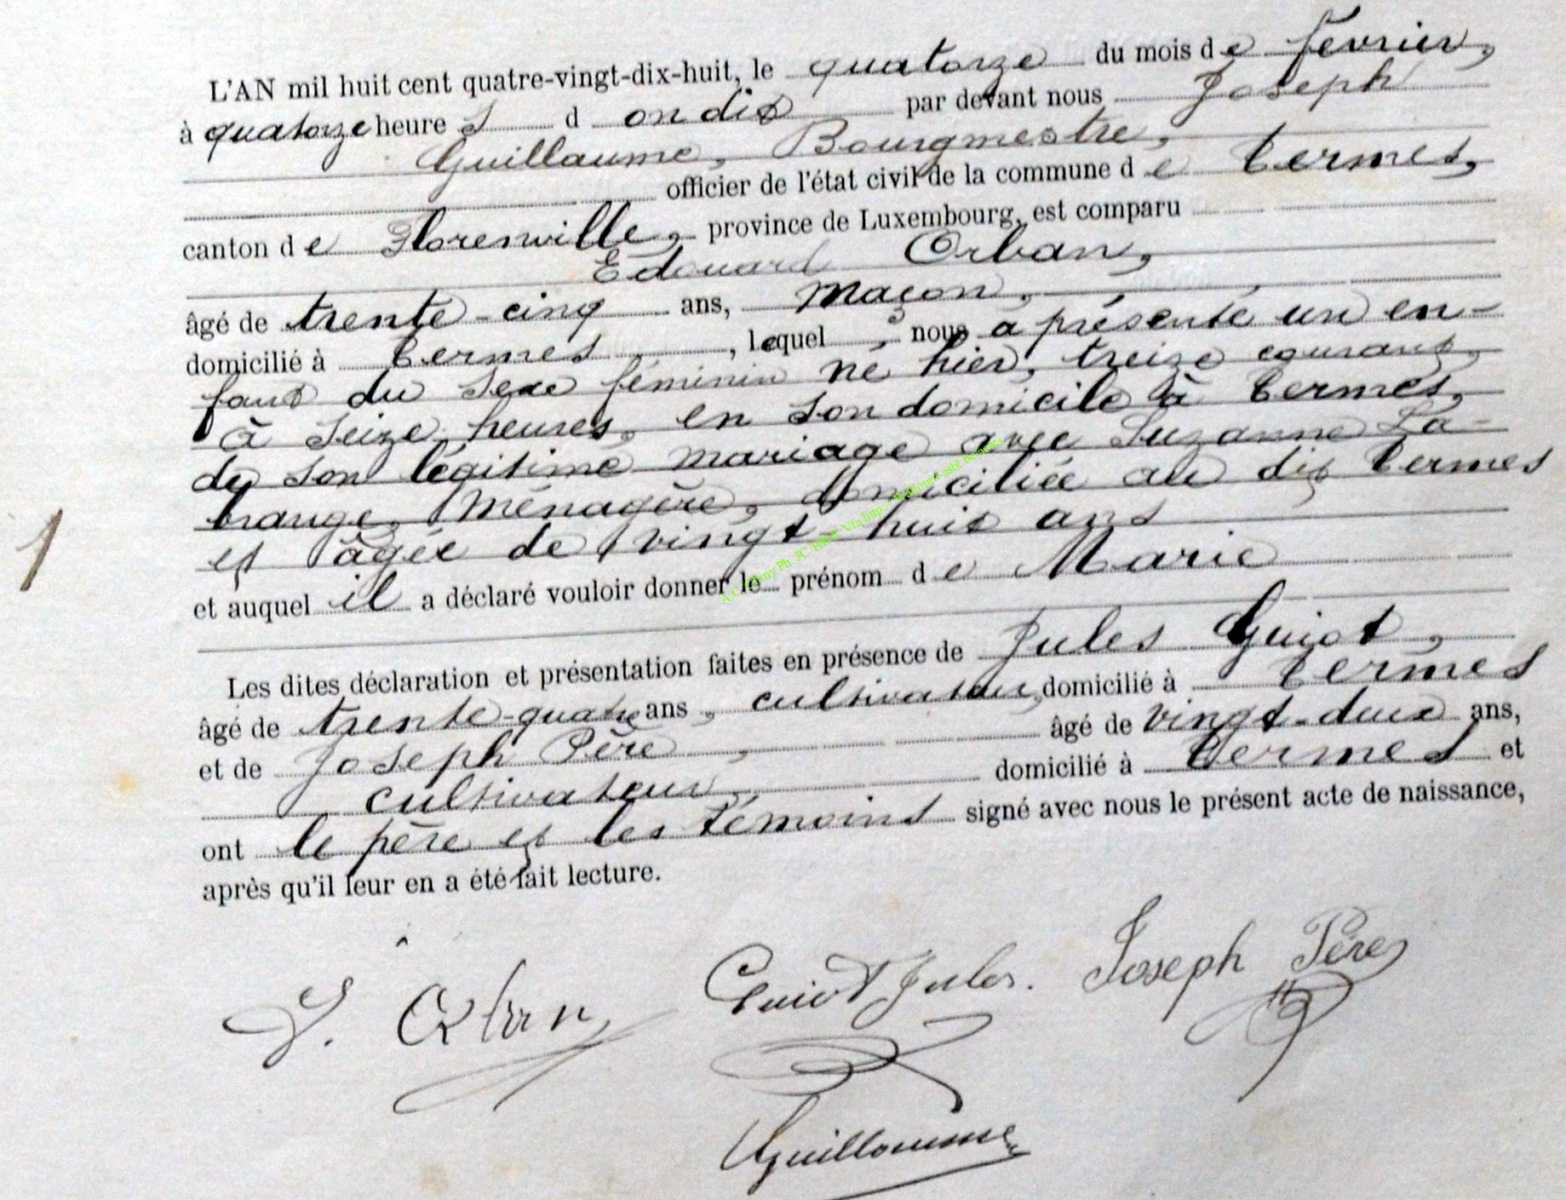 L'AN mil huit cent quatre-vingt-dix-huit, le quatorze du mois de février,
à quatorze heures d on dit par devant nous Joseph
Guillaume, Bourgmestre,
officier de l'état civil de la commune de Termes,
canton de Florenville, province de Luxembourg, est comparu
Edouard Orban,
âgé de trente-cinq ans, maçon,
domicilié à Termes, lequel nous a présenté un en-
fant du sexe féminin né hier, treize courant,
à seize heures, en son domicile à Termes,
de son légitime mariage avec Suzanne La-
brange, Ménagère, domiciliée au dit Termes
et âgée de vingt-huit ans
1
et auquel il a déclaré vouloir donner le prénom de Marie
Les dites déclaration et présentation faites en présence de Jules Guiot,
âgé de trente-quatre ans, cultivateur, domicilié à Termes
et de Joseph Père, âgé de vingt-deux ans,
cultivateur, domicilié à Termes et
ont le père et les témoins signé avec nous le présent acte de naissance,
après qu'il leur en a été fait lecture.
Orban Guiot Jules. Joseph Père
Guillaume